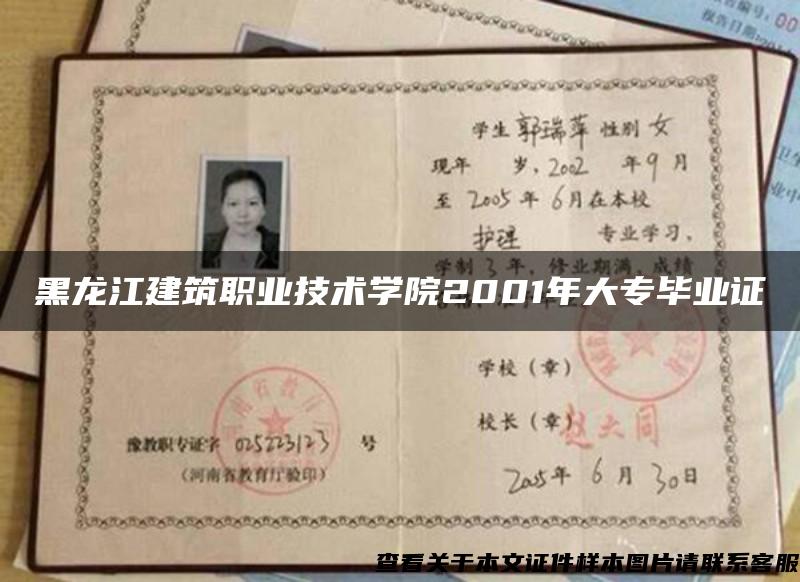 告编号:00
报告日期:201
学生 郭瑞萍 性别 女
现年 岁,2002 年 9 月
至 2005 年 6 月在本校
护理 专业学习,
学制 3 年,修业期满,成绩
黑龙江建筑职业技术学院2001年大专毕业证
学校(章)
校长(章)赵大同
豫教职专证字 025223123 号
(河南省教育厅验印)
2005 年 6 月 30 日
查看关于本文证件样本图片请联系客服